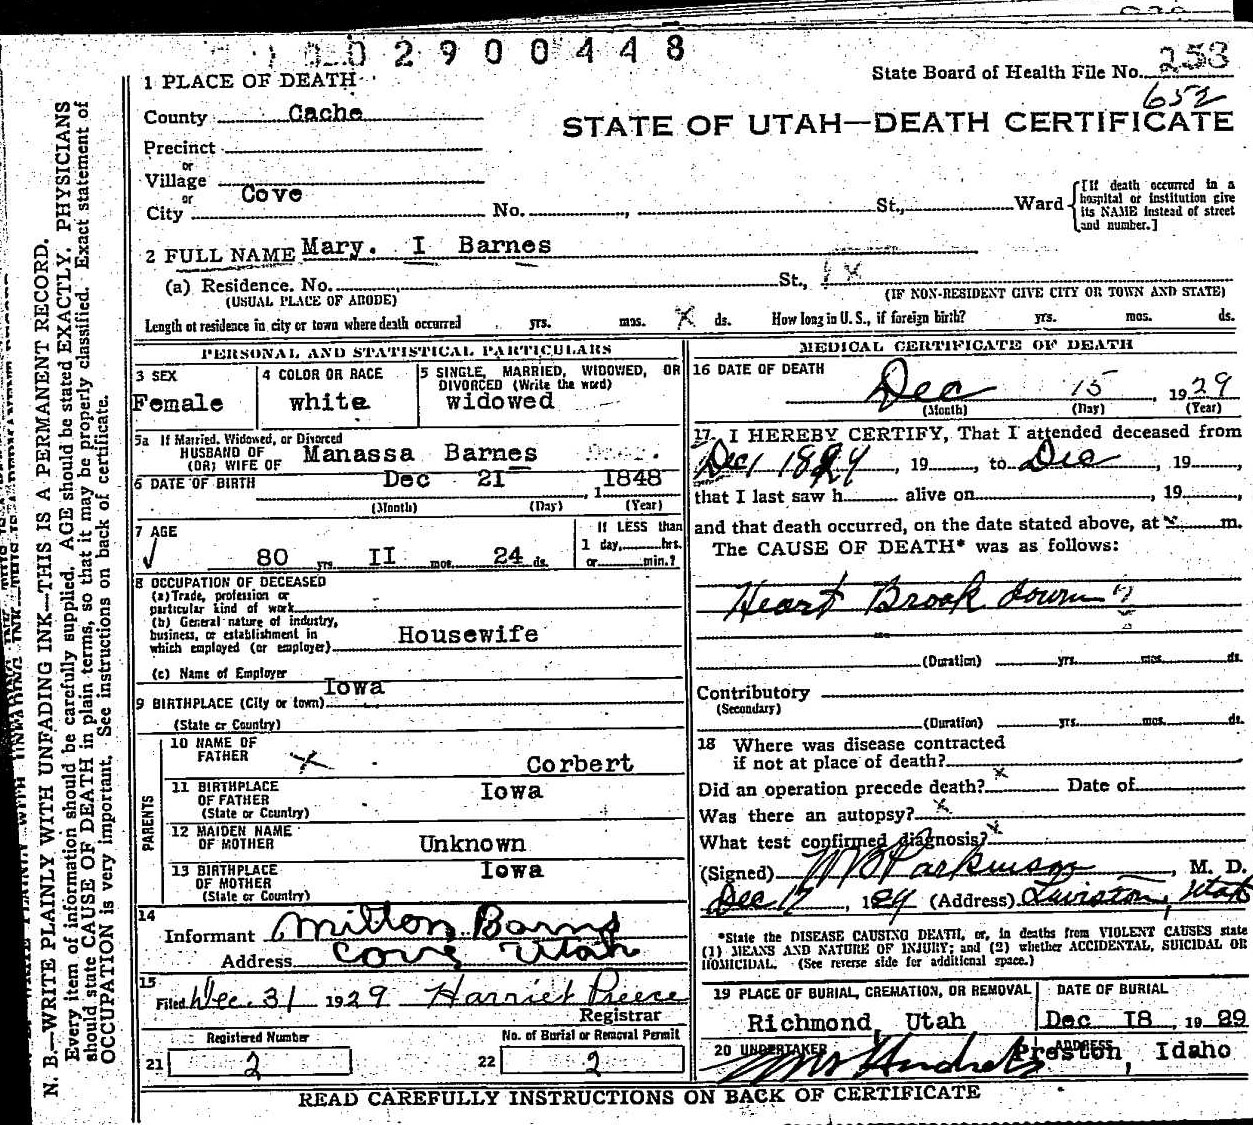 2900448
State Board of Health File No. 253
652
1 PLACE OF DEATH
County Cache
STATE OF UTAH—DEATH CERTIFICATE
Precinct
or
Village
or
City Cove No. , St., Ward
[If death occurred in a hospital or institution give its NAME instead of street and number.]
2 FULL NAME Mary. I Barnes
(a) Residence. No. St.,
(USUAL PLACE OF ABODE) (IF NON-RESIDENT GIVE CITY OR TOWN AND STATE)
Length of residence in city or town where death occurred yrs. mos. ds. How long in U. S., if foreign birth? yrs. mos. ds.
PERSONAL AND STATISTICAL PARTICULARS
3 SEX
Female
4 COLOR OR RACE
white
5 SINGLE, MARRIED, WIDOWED, OR DIVORCED (Write the word)
widowed
5a If Married, Widowed, or Divorced
HUSBAND OF
(OR) WIFE OF Manassa Barnes
6 DATE OF BIRTH Dec 21 , 1 1848
(Month) (Day) (Year)
7 AGE
80 yrs. II mos. 24 ds.
If LESS than
1 day, hrs.
or min.?
8 OCCUPATION OF DECEASED
(a) Trade, profession or
particular kind of work
(b) General nature of industry,
business, or establishment in
which employed (or employer) Housewife
(c) Name of Employer
9 BIRTHPLACE (City or town) Iowa
(State or Country)
PARENTS
10 NAME OF
FATHER x Corbert
11 BIRTHPLACE
OF FATHER Iowa
(State or Country)
12 MAIDEN NAME
OF MOTHER Unknown
13 BIRTHPLACE
OF MOTHER Iowa
(State or Country)
14
Informant Milton Barns
Address Cove Utah
15
Filed Dec. 31 1929 Harriet Preece
Registrar
Registered Number
21 2
No. of Burial or Removal Permit
22 2
MEDICAL CERTIFICATE OF DEATH
16 DATE OF DEATH
Dec 15 , 1929
(Month) (Day) (Year)
17. I HEREBY CERTIFY, That I attended deceased from
Dec 1 , 19 , to Dec , 19 ,
that I last saw h alive on , 19 ,
and that death occurred, on the date stated above, at m.
The CAUSE OF DEATH* was as follows:
Heart Brook down
(Duration) yrs. mos. ds.
Contributory
(Secondary)
(Duration) yrs. mos. ds.
18 Where was disease contracted
if not at place of death?
Did an operation precede death? x Date of
Was there an autopsy? x
What test confirmed diagnosis? x
(Signed) W B Parkinson , M. D.
Dec 17 , 19 (Address) Lewiston, Utah
*State the DISEASE CAUSING DEATH, or, in deaths from VIOLENT CAUSES state
(1) MEANS AND NATURE OF INJURY; and (2) whether ACCIDENTAL, SUICIDAL OR
HOMICIDAL. (See reverse side for additional space.)
19 PLACE OF BURIAL, CREMATION, OR REMOVAL
Richmond, Utah
DATE OF BURIAL
Dec 18 , 19 29
20 UNDERTAKER
ADDRESS
Preston, Idaho
READ CAREFULLY INSTRUCTIONS ON BACK OF CERTIFICATE
N. B.—WRITE PLAINLY WITH UNFADING INK—THIS IS A PERMANENT RECORD.
Every item of information should be carefully supplied. AGE should be stated EXACTLY. PHYSICIANS
should state CAUSE OF DEATH in plain terms, so that it may be properly classified. Exact statement of
OCCUPATION is very important. See instructions on back of certificate.